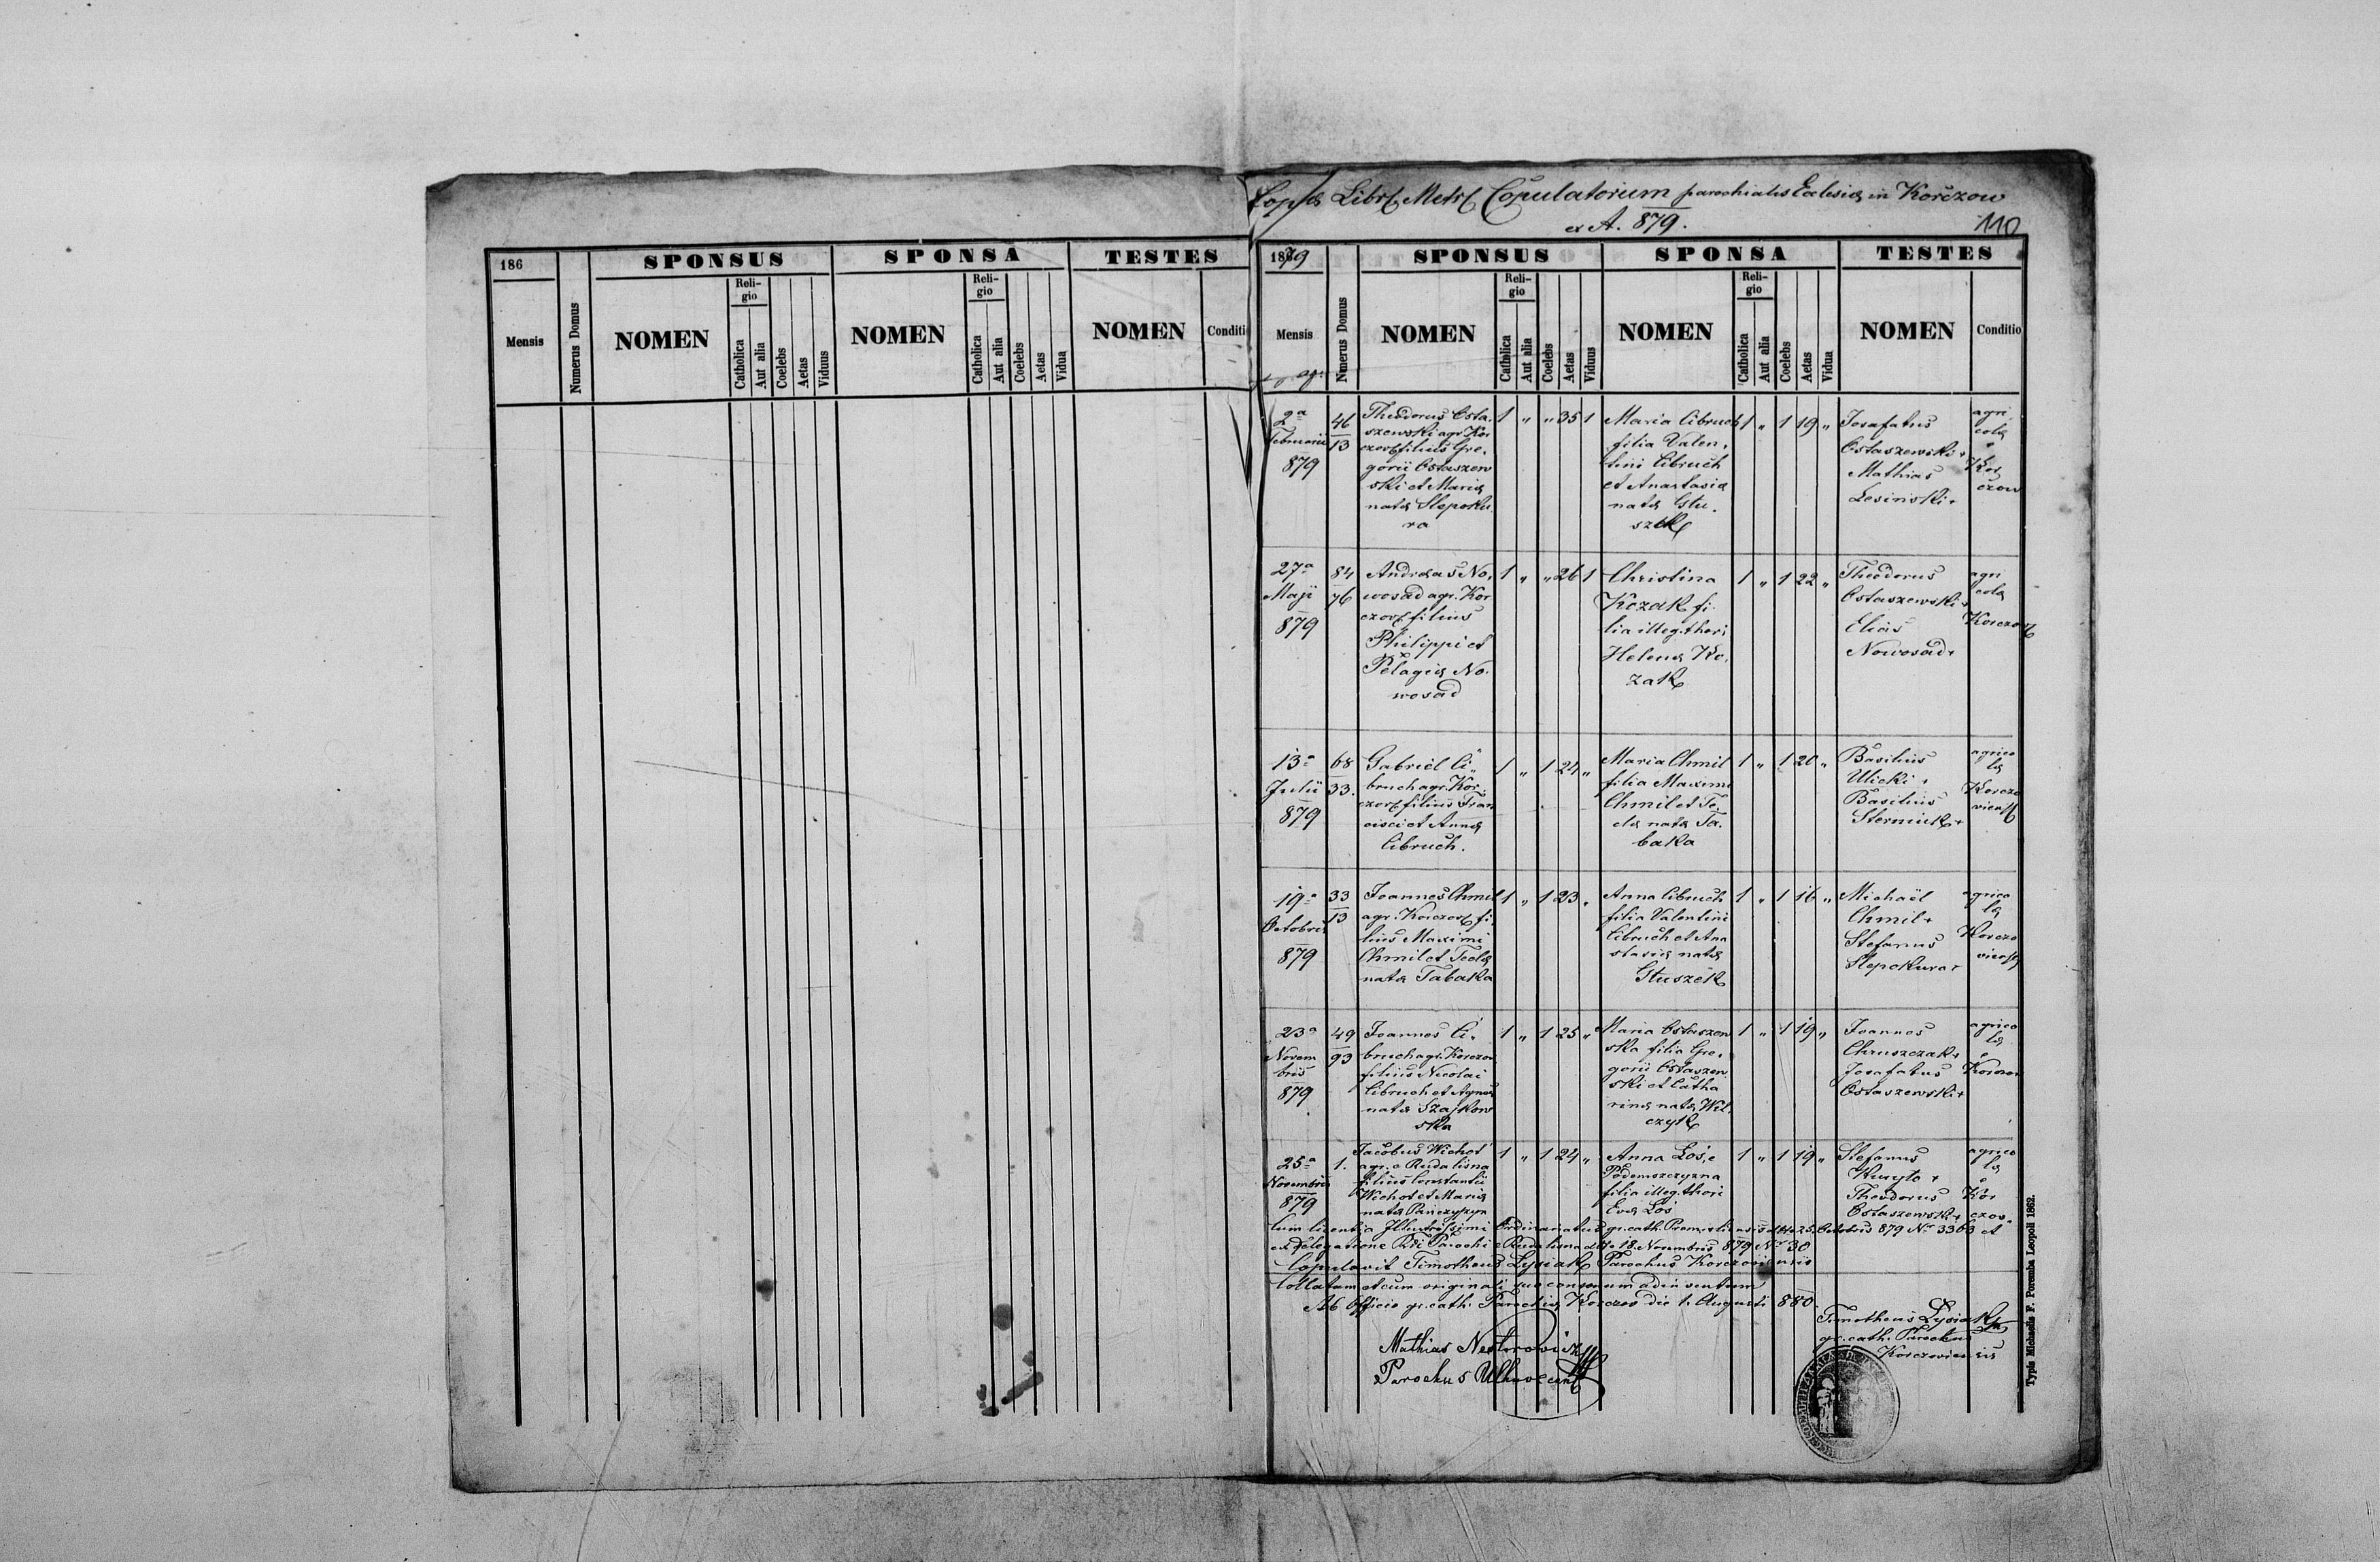 186
SPONSUS
SPONSA
TESTES
Mensis
Numerus Domus
NOMEN
Reli-
gio
Catholica
Aut alia
Coelebs
Aetas
Viduus
NOMEN
Reli-
gio
Catholica
Aut alia
Coelebs
Aetas
Vidua
NOMEN
Conditi
Libr. Metr. Copulatorum parochialis Ecclesiæ in Korczow
ex A. 879.
110
1879
SPONSUS
SPONSA
TESTES
Mensis
Numerus Domus
NOMEN
Reli-
gio
Catholica
Aut alia
Coelebs
Aetas
Viduus
NOMEN
Reli-
gio
Catholica
Aut alia
Coelebs
Aetas
Vidua
NOMEN
Conditio
2a
Februarii
879
46
13
Theodorus Osta-
szewski agr. Kor
czow. filius Gre-
gorii Ostaszew
ski et Mariæ
natæ Slepoku
ra
1 " " 35 1
Maria Cibruch
filia Valen-
tini Cibruch
et Anastasiæ
natæ Gtu-
szek
1 " 1 19 "
Josafatus
Ostaszewski +
Mathias
Lesinski +
agri
colæ
e
Kor
czow
27a
Maji
879
84
76
Andreas No-
wosad agr. Kor
czow. filius
Philippi et
Pelagiæ No-
wosad
1 " " 26 1
Christina
Kozak fi-
lia illeg. thori
Helenæ Ko-
zak
1 " 1 22 "
Theodorus
Ostaszewski +
Elias
Nowosad +
agri
colæ
Korczow
13a
Julii
879
68
33.
Gabriel Ci-
bruch agr. Kor-
czow. filius Fran
cisci et Annæ
Cibruch.
1 " 1 24 "
Maria Chmil
filia Maximi
Chmil et Te-
clæ natæ Ta-
baka
1 " 1 20 "
Basilius
Ulicki +
Basilius
Sterniuk +
agrico
læ
Korczo
viens
19a
Octobris
879
33
13
Joannes Chmil
agr. Korczow. fi-
lius Maximi
Chmil et Teclæ
natæ Tabaka
1 " 1 23 "
Anna Cibruch
filia Valentini
Cibruch et Ana
stasiæ natæ
Gtuszek
1 " 1 16 "
Michaël
Chmil +
Stefanus
Slepokura +
agrico
læ
Korczo
viens
23a
Novem
bris
879
49
93
Joannes Ci-
bruch agr. Korczow
filius Nicolai
Cibruch et Agnes
natæ Szajkow
ska
1 " 1 25 "
Maria Ostaszew
ska filia Gre-
gorii Ostaszew
ski et Catha
rinæ natæ Wil-
czyk
1 " 1 19 "
Joannes
Chruszczak +
Josafatus
Ostaszewski +
agrico
læ
e
Korczow
25a
Novembris
879
1.
Jacobus Wichot
agr. e Ruda lisna
filius Constantii
Wichot et Mariæ
natæ
1 " 1 24 "
Anna Łoś, e
Podemszczyzna
filia illeg. thori
Evæ Łoś
1 " 1 19 "
Stefanus
Theodorus
Ostaszewski +
agrico
læ
e
Kor
czow.
Cum licentia Illustrissimi Ordinariatus gr. cath. Premisliensis ddto 25. Octobris 879 Nr. 3363 et
ex delegatione Rdi Parochi e Ruda lisna ddto 18. Novembris 879 Nr 30
Copulavit Timotheus Lysiak Parochus Korczoviensis
Collatum et cum originali suo consonum adinventum
Ab Officio gr. cath. Parochiæ Korczow die 1. Augusti 880.
Timotheus Lysiak
gr. cath. Parochus
Korczoviensis
Mathias Nestorowicz
Parochus
Typis Michaelis F. Poremba Leopoli 1862.